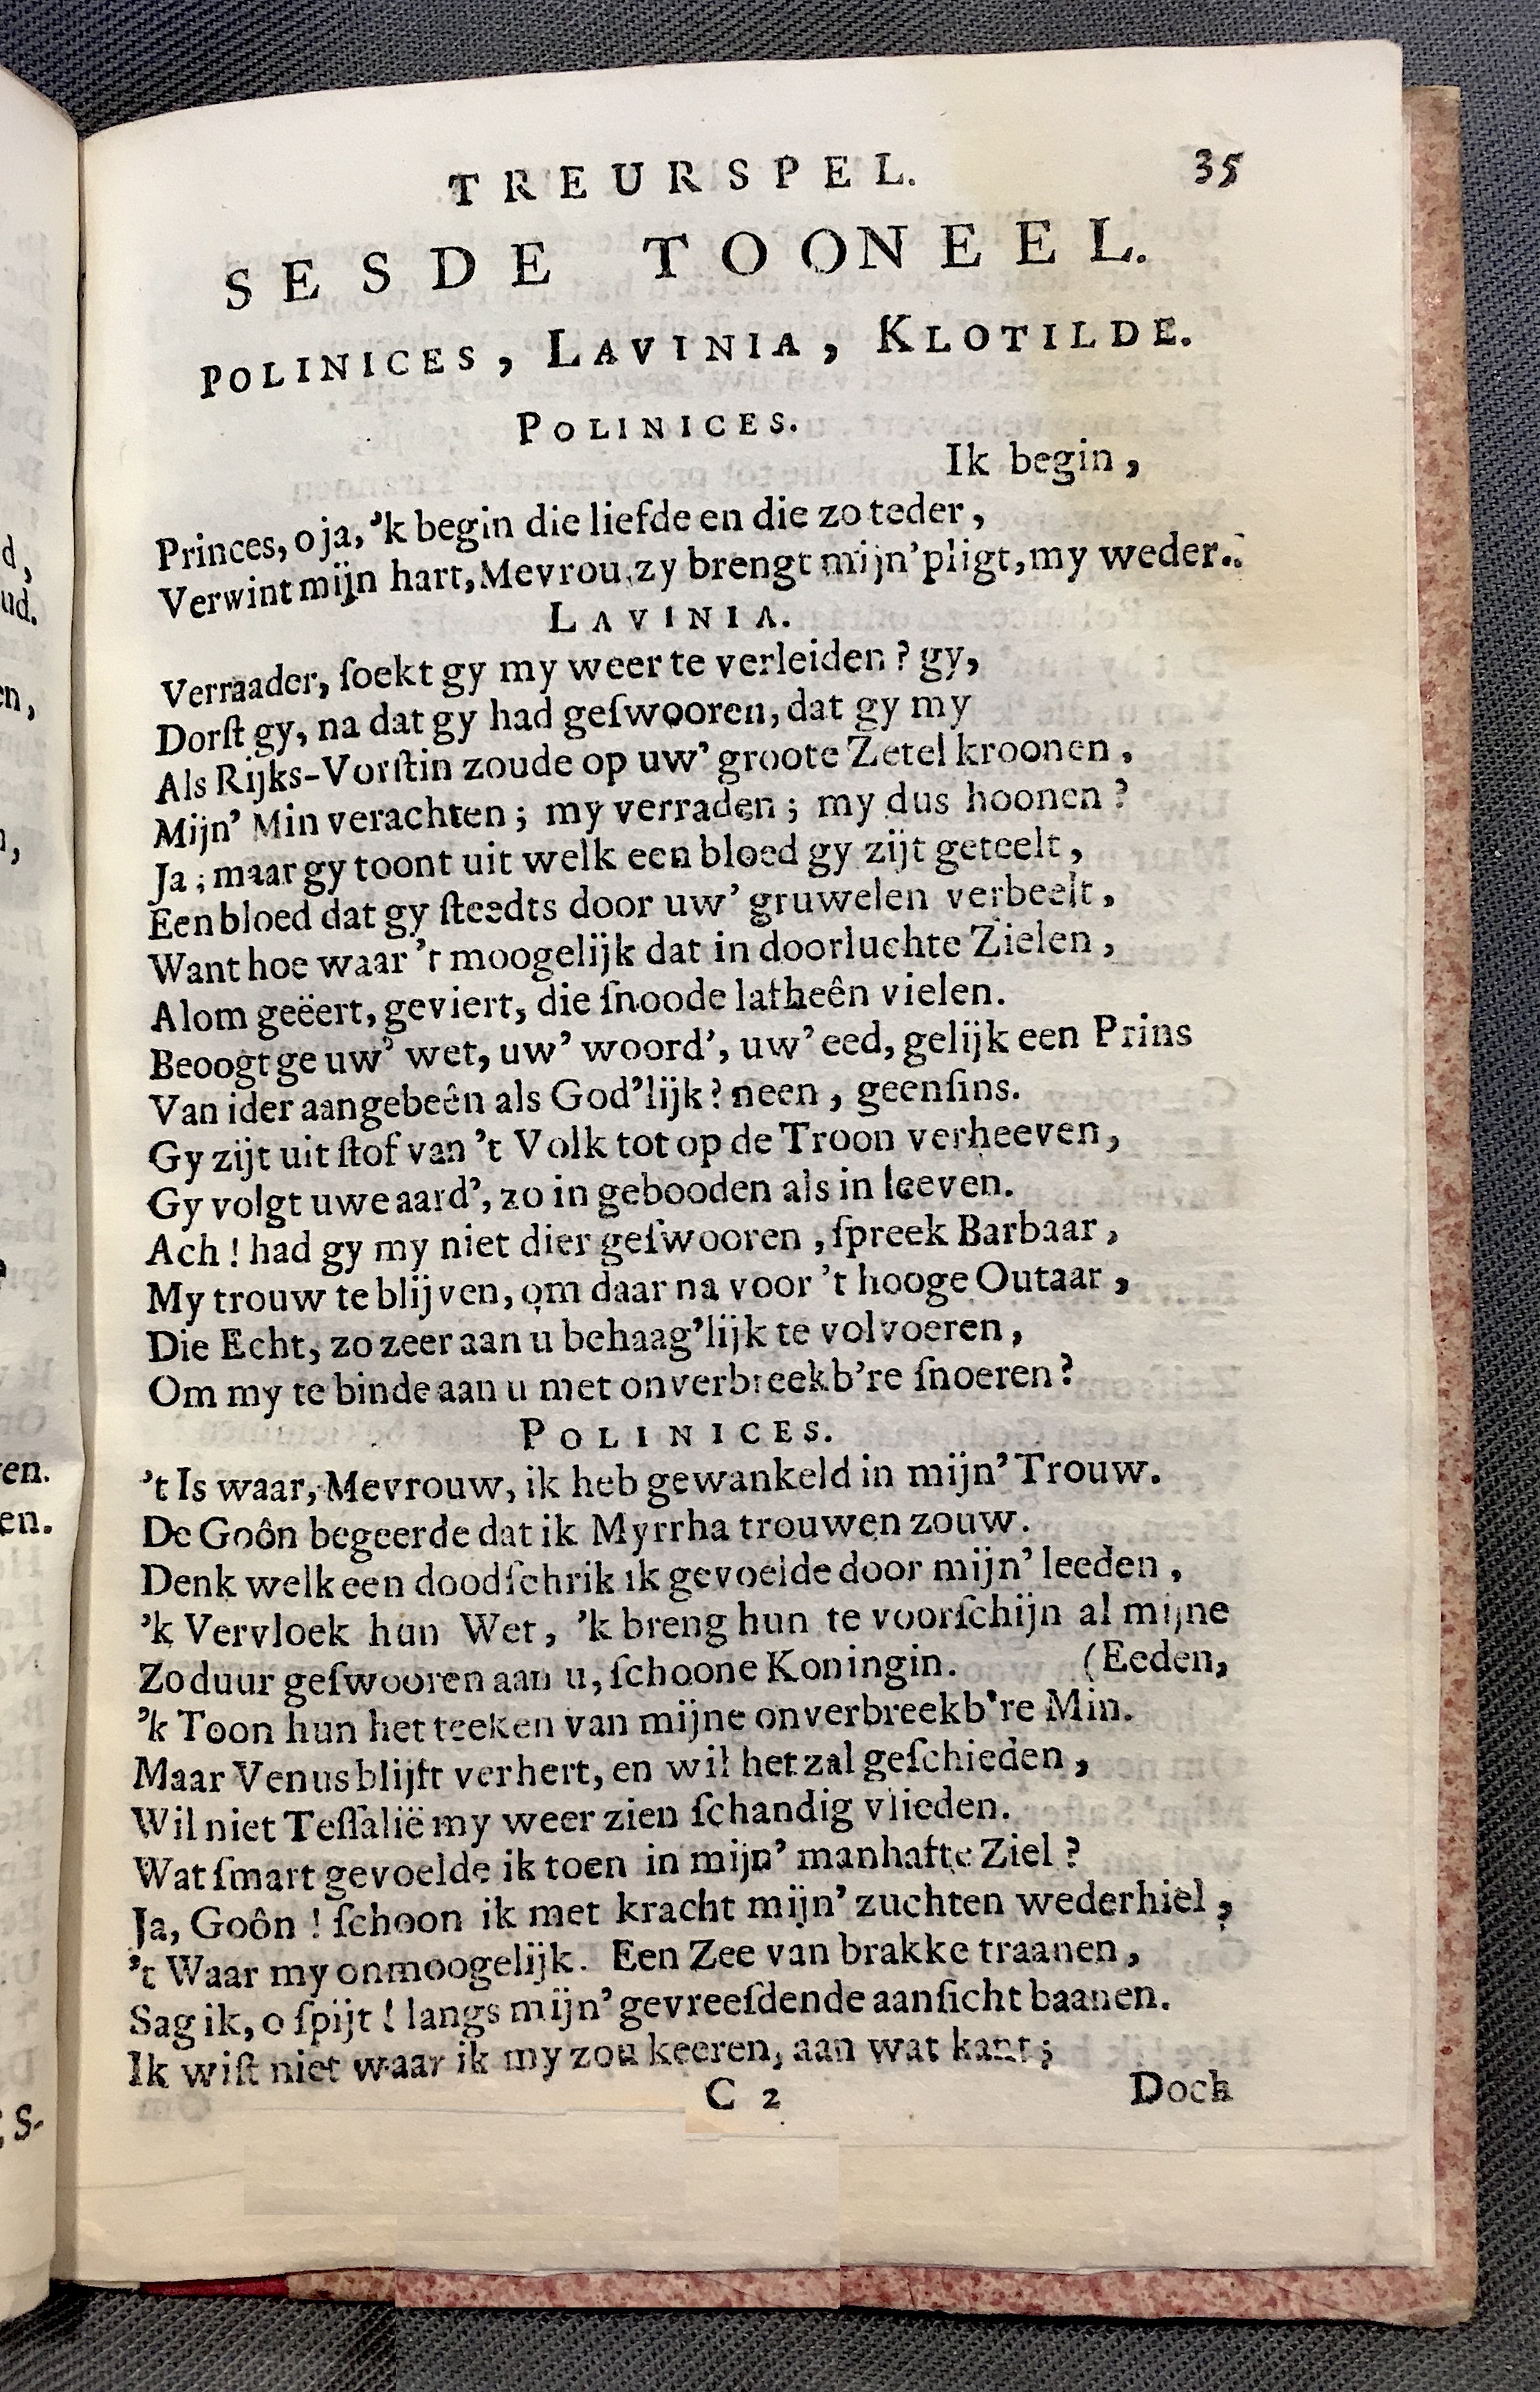 TREURSPEL. 35
SESDE TOONEEL.
POLINICES, LAVINIA, KLOTILDE.
POLINICES.
Ik begin,
Princes, o ja, 'k begin die liefde en die zo teder,
Verwint mijn hart, Mevrou, zy brengt mijn' pligt, my weder.
LAVINIA.
Verraader, ſoekt gy my weer te verleiden? gy,
Dorſt gy, na dat gy had geſwooren, dat gy my
Als Rijks-Vorſtin zoude op uw' groote Zetel kroonen,
Mijn' Min verachten; my verraden; my dus hoonen?
Ja; maar gy toont uit welk een bloed gy zijt geteelt,
Een bloed dat gy ſteedts door uw' gruwelen verbeelt,
Want hoe waar 't moogelijk dat in doorluchte Zielen,
Alom geëert, geviert, die ſnoode lafheên vielen.
Beoogt ge uw' wet, uw' woord', uw' eed, gelijk een Prins
Van ider aangebeên als God'lijk? neen, geenſins.
Gy zijt uit ſtof van 't Volk tot op de Troon verheeven,
Gy volgt uwe aard', zo in gebooden als in leeven.
Ach! had gy my niet dier geſwooren, ſpreek Barbaar,
My trouw te blijven, om daar na voor 't hooge Outaar,
Die Echt, zo zeer aan u behaag'lijk te volvoeren,
Om my te binde aan u met onverbreekb're ſnoeren?
POLINICES.
't Is waar, Mevrouw, ik heb gewankeld in mijn' Trouw.
De Goôn begeerde dat ik Myrrha trouwen zouw.
Denk welk een doodſchrik ik gevoelde door mijn' leeden,
'k Vervloek hun Wet, 'k breng hun te voorſchijn al mijne
Zo duur geſwooren aan u, ſchoone Koningin. (Eeden,
'k Toon hun het teeken van mijne onverbreekb're Min.
Maar Venus blijft verhert, en wil het zal geſchieden,
Wil niet Teſſalië my weer zien ſchandig vlieden.
Wat ſmart gevoelde ik toen in mijn' manhafte Ziel?
Ja, Goôn! ſchoon ik met kracht mijn' zuchten wederhiel,
't Waar my onmoogelijk. Een Zee van brakke traanen,
Sag ik, o ſpijt! langs mijn' gevreeſdende aanſicht baanen.
Ik wiſt niet waar ik my zou keeren, aan wat kant;
C 2 Doch